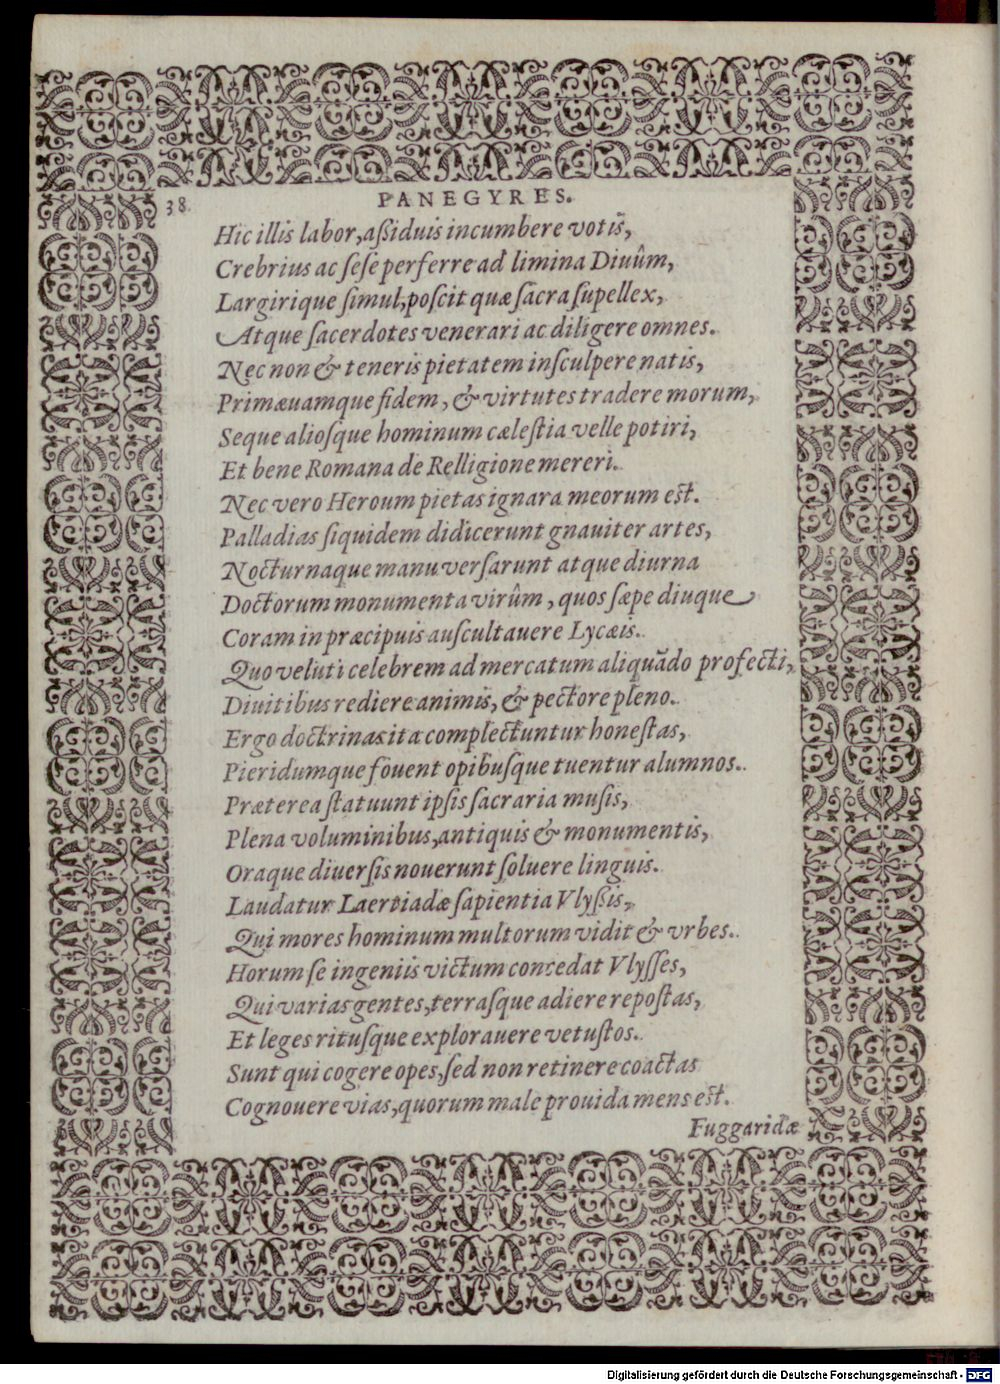 PANEGYRES.
38.
Hic illis labor, aßiduis incumbere votis̃,
Crebrius ac ſeſe perferre ad limina Diuûm,
Largirique ſimul, poſcit quæ ſacra ſupellex,
Atque ſacerdotes venerari ac diligere omnes.
Nec non & teneris pietatem inſculpere natis,
Primæuamque fidem, & virtutes tradere morum,
Seque alioſque hominum cæleſtia velle potiri,
Et bene Romana de Relligione mereri.
Nec vero Heroum pietas ignara meorum est.
Palladias ſiquidem didicerunt gnauiter artes,
Nocturnaque manu verſarunt atque diurna
Doctorum monumenta virûm, quos ſæpe diuque
Coram in præcipuis auſcultauere Lycæis.
Quo veluti celebrem ad mercatum aliquādo profecti,
Diuitibus rediere animis, & pectore pleno.
Ergo doctrinas ita complectuntur honeſtas,
Pieridumque fouent opibuſque tuentur alumnos.
Præterea ſtatuunt ipſis ſacraria muſis,
Plena voluminibus, antiquis & monumentis,
Oraque diuerſis nouerunt ſoluere linguis.
Laudatur Laertiadæ ſapientia Vlyſſis,
Qui mores hominum multorum vidit & vrbes.
Horum ſe ingeniis victum concedat Vlyſſes,
Qui varias gentes, terraſque adiere repoſtas,
Et leges rituſque explorauere vetuſtos.
Sunt qui cogere opes, ſed non retinere coactas
Cognouere vias, quorum male prouida mens est.
Fuggaridæ
Digitalisierung gefördert durch die Deutsche Forschungsgemeinschaft - DFG